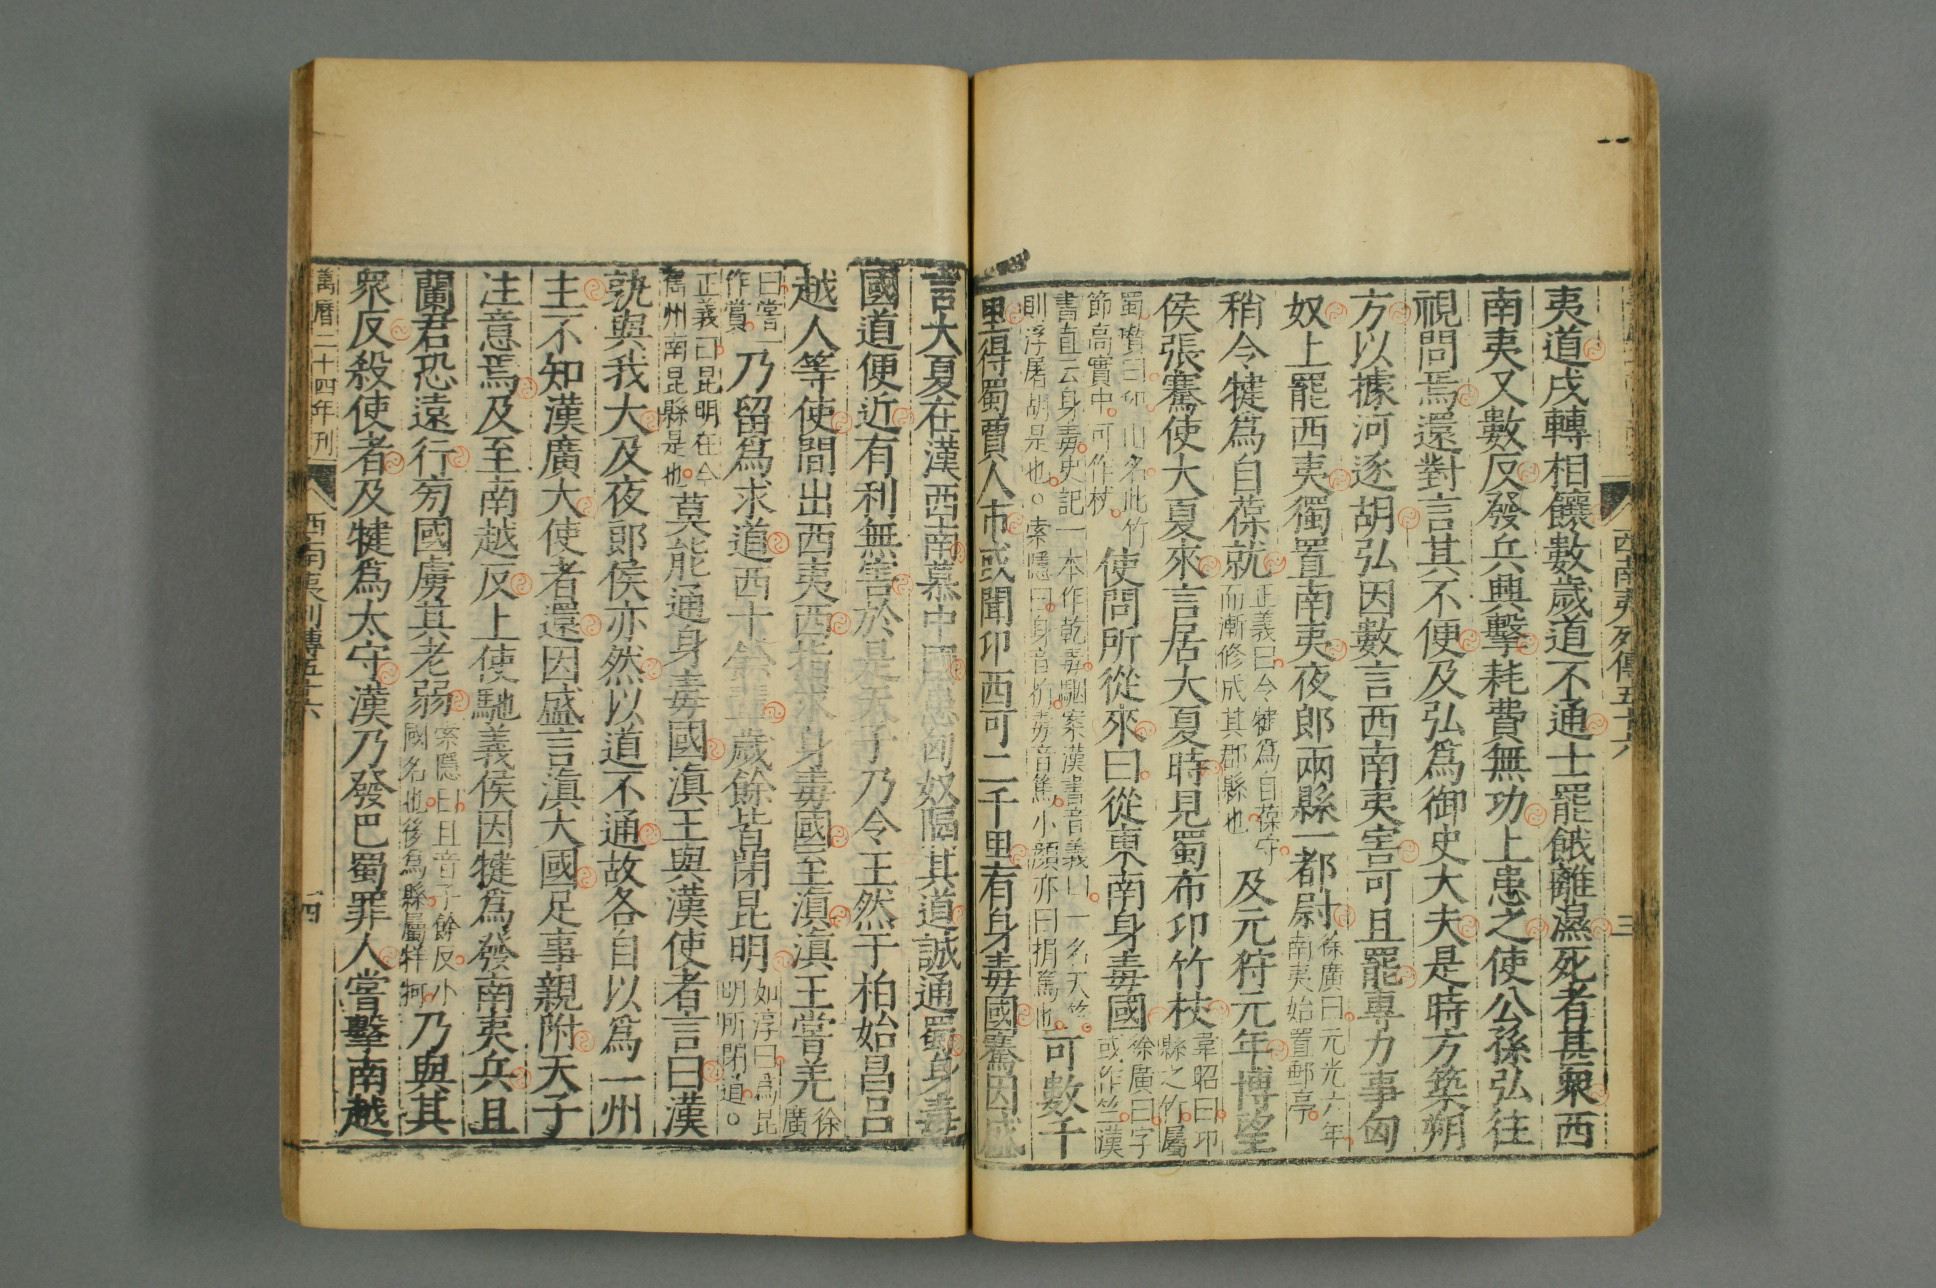 西南夷列傳五十六
三
夷道戍轉相饟數歲道不通士罷餓離濕死者甚衆西
南夷又數反發兵興擊耗費無功上患之使公孫弘往
視問焉還對言其不便及弘爲御史大夫是時方築朔
方以據河逐胡弘因數言西南夷害可且罷專力事匈
奴上罷西夷獨置南夷夜郎兩縣一都尉
徐廣曰元光六年
南夷始置郵亭
稍令犍爲自葆就
正義曰今犍爲自葆守
而漸修成其郡縣也
及元狩元年博望
侯張騫使大夏來言居大夏時見蜀布卭竹杖
韋昭曰卭
縣之竹屬
蜀瓚曰卭山名此竹
節高實中可作杖
使問所從來曰從東南身毒國
徐廣曰字
或作竺漢
書直云身毒史記一本作乾毒駰案漢書音義曰一名天竺
則浮屠胡是也○索隱曰身音捐毒音篤小顔亦曰捐篤也
可數千
里得蜀賈人市或聞卭西可二千里有身毒國騫因盛
言大夏在漢西南慕中國患匈奴隔其道誠通蜀身毒
國道便近有利無害於是天子乃令王然于柏始昌呂
越人等使間出西夷西指求身毒國至滇滇王嘗羌
徐
廣
曰嘗一
作賞
乃留爲求道西十餘輩歲餘皆閉昆明
如淳曰爲昆
明所閉道○
正義曰昆明在今
嶲州南昆縣是也
莫能通身毒國滇王與漢使者言曰漢
孰與我大及夜郎侯亦然以道不通故各自以爲一州
主不知漢廣大使者還因盛言滇大國足事親附天子
注意焉及至南越反上使馳義侯因犍爲發南夷兵且
蘭君恐遠行旁國虜其老弱
索隱曰且音子餘反小
國名也後爲縣屬牂牁
乃與其
衆反殺使者及犍爲太守漢乃發巴蜀罪人嘗擊南越
萬曆二十四年刊
西南夷列傳五十六
四